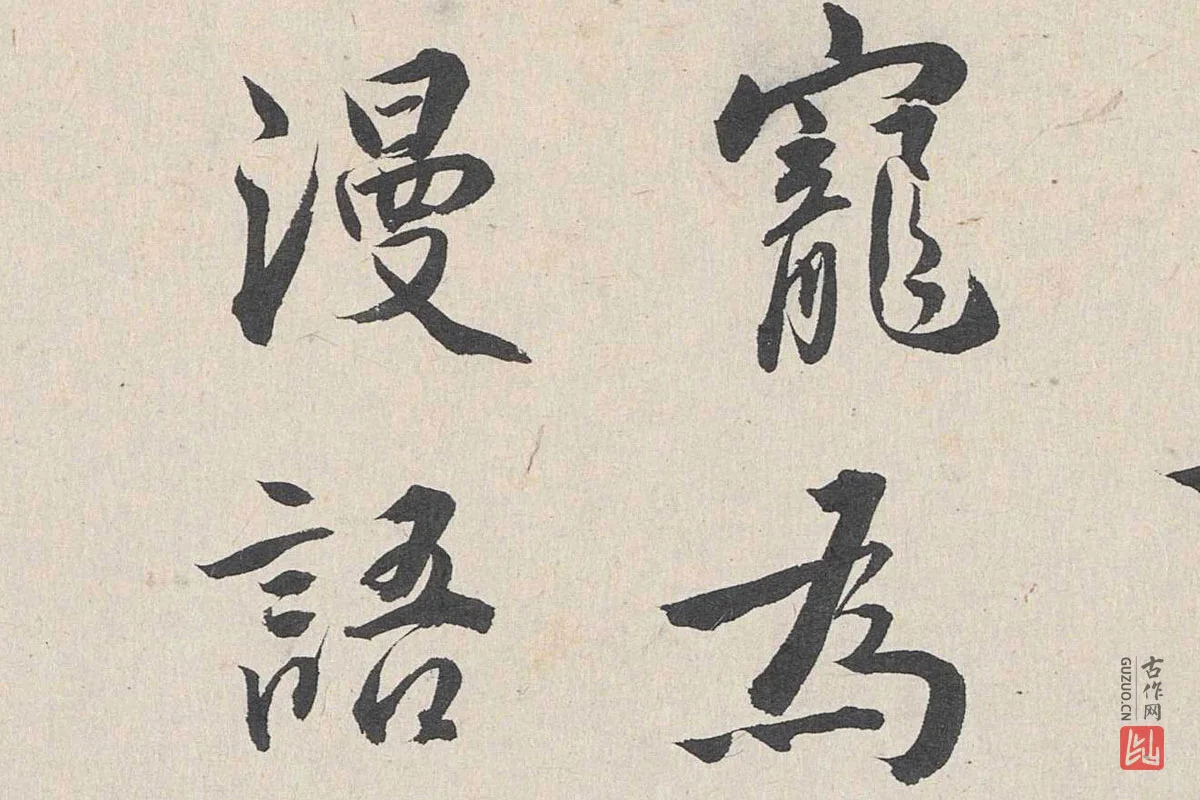 寵為
漫語
古作网
GUZUO.CN